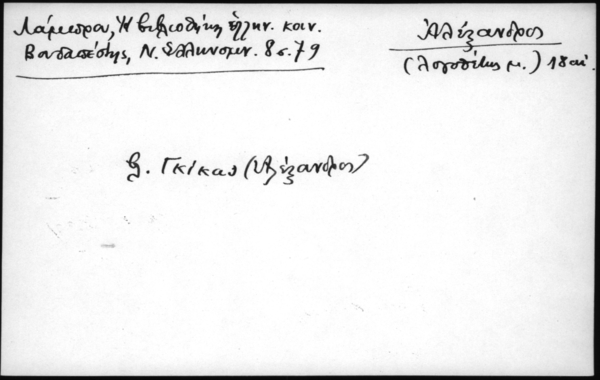 Λάμπρου, Ἡ βιβλιοθήκη ἑλλην. κοιν.
Βουδαπέστης, Ν. Ἑλληνομν. 8 σ. 79
Ἀλέξανδρος
(λογοθέτης μ.) 18 αἰ.
β. Γκίκας (Ἀλέξανδρος)